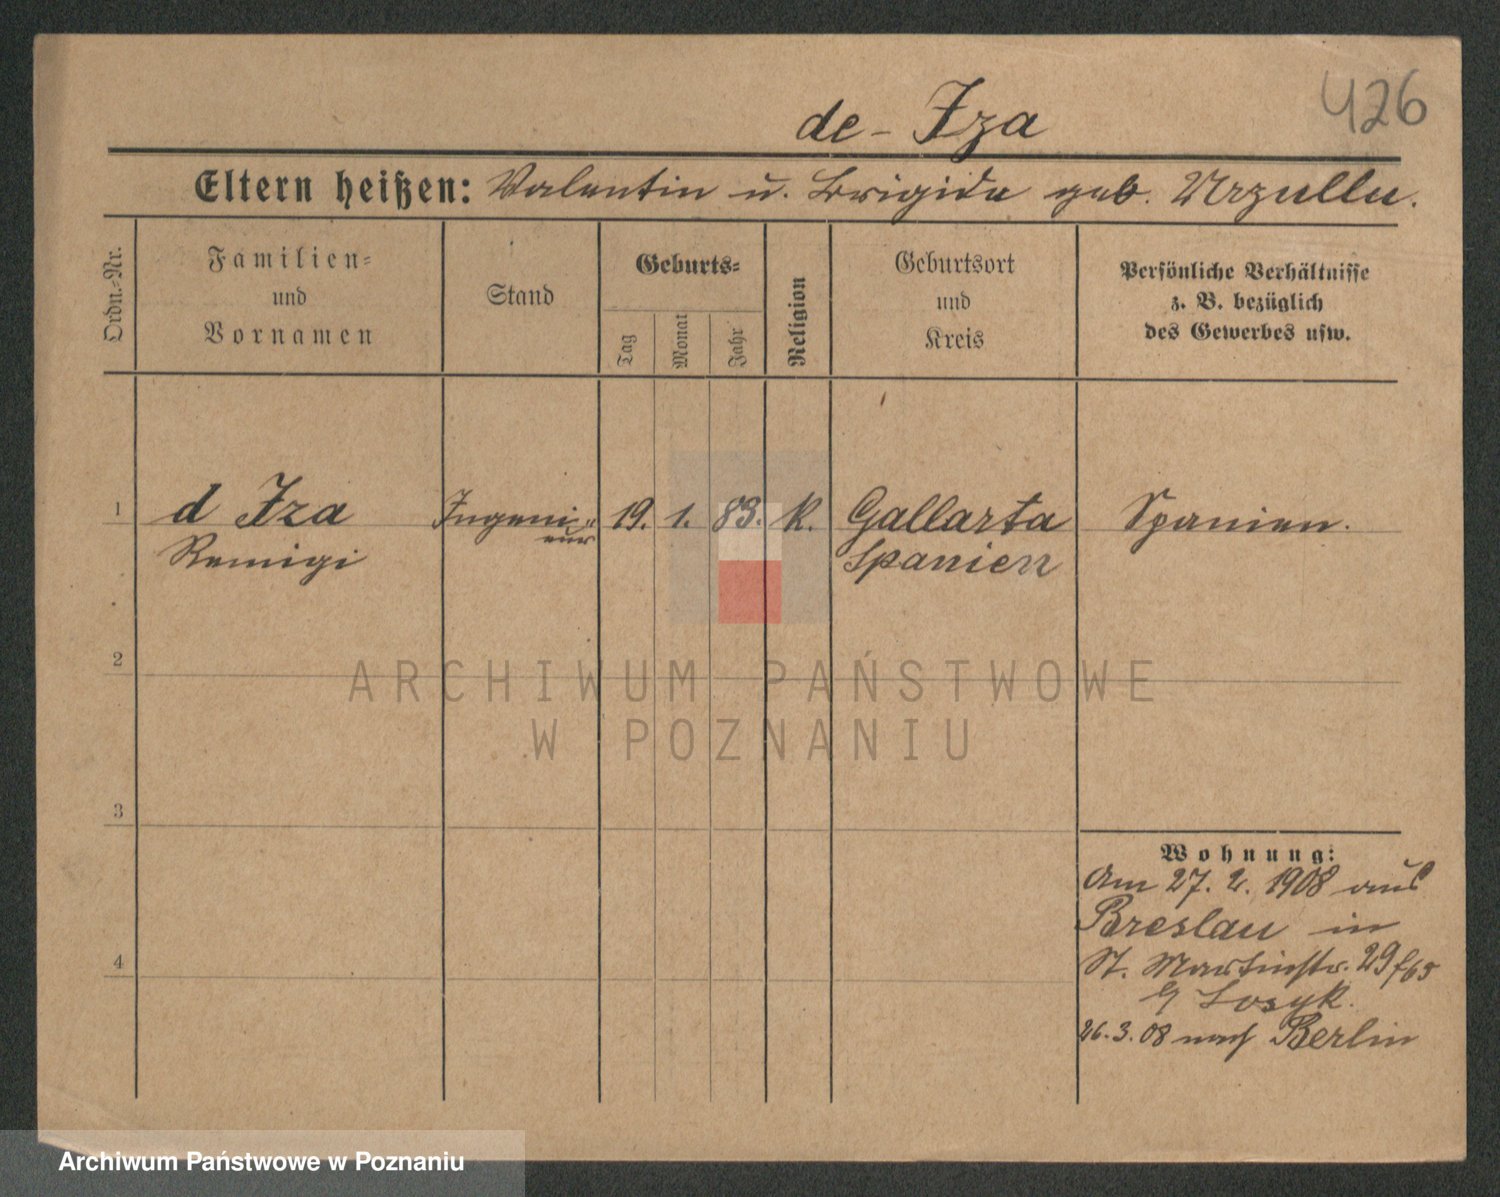 426
de - Iza
Eltern heißen: Valentin u. Brigida geb. Urzullu.
Ordn.-Nr.
Familien-
und
Vornamen
Stand
Geburts-
Tag
Monat
Jahr
Religion
Geburtsort
und
Kreis
Persönliche Verhältnisse
z. B. bezüglich
des Gewerbes usw.
1
d Iza
Remigi
Ingeni-
eur
19. 1. 83. K.
Gallarta
Spanien
Spanien.
2
3
4
ARCHIWUM PAŃSTWOWE
W POZNANIU
Wohnung:
Am 27. 2. 1908 aus
Breslau in
St. Martinstr. 29
Losyk.
26.3.08 nach Berlin
Archiwum Państwowe w Poznaniu